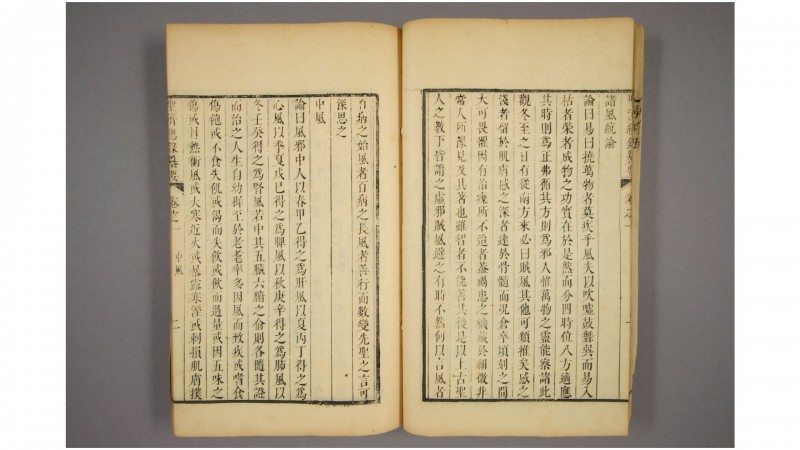 諸風統論
論曰易曰撓萬物者莫疾乎風夫以吹噓鼓舞巽而易入
枯者榮者成物之功實在於是然而分四時位八方適應
其時則為正弗循其方則為邪人惟萬物之靈能察諸此
觀冬至之日有從南方來必曰賊風其他可類推矣感之
淺者留於肌膚感之深者達於骨髓而況倉卒頃刻之間
大可畏懼因有治療所不迨者蓋禍患之機藏於細微非
常人所豫見及其著也雖智者不能善其後是以上古聖
人之教下皆謂之虛邪賊風避之有時不然何以言風者
百病之始風者百病之長風者善行而數變先聖之言可
深思之
中風
論曰風邪中人以春甲乙得之為肝風以夏丙丁得之為
心風以季夏戊己得之為脾風以秋庚辛得之為肺風以
冬壬癸得之為腎風若中其五臟六腑之俞則各隨其證
而治之人生自幼稺至於老耄率多因風而致疾或嗜食
傷飽或不食失飢或渴而失飲或飲而過量或因五味之
傷或目熱衝風或大寒近火或暴露寒溼或刺損肌膚撲
卷之一 中風